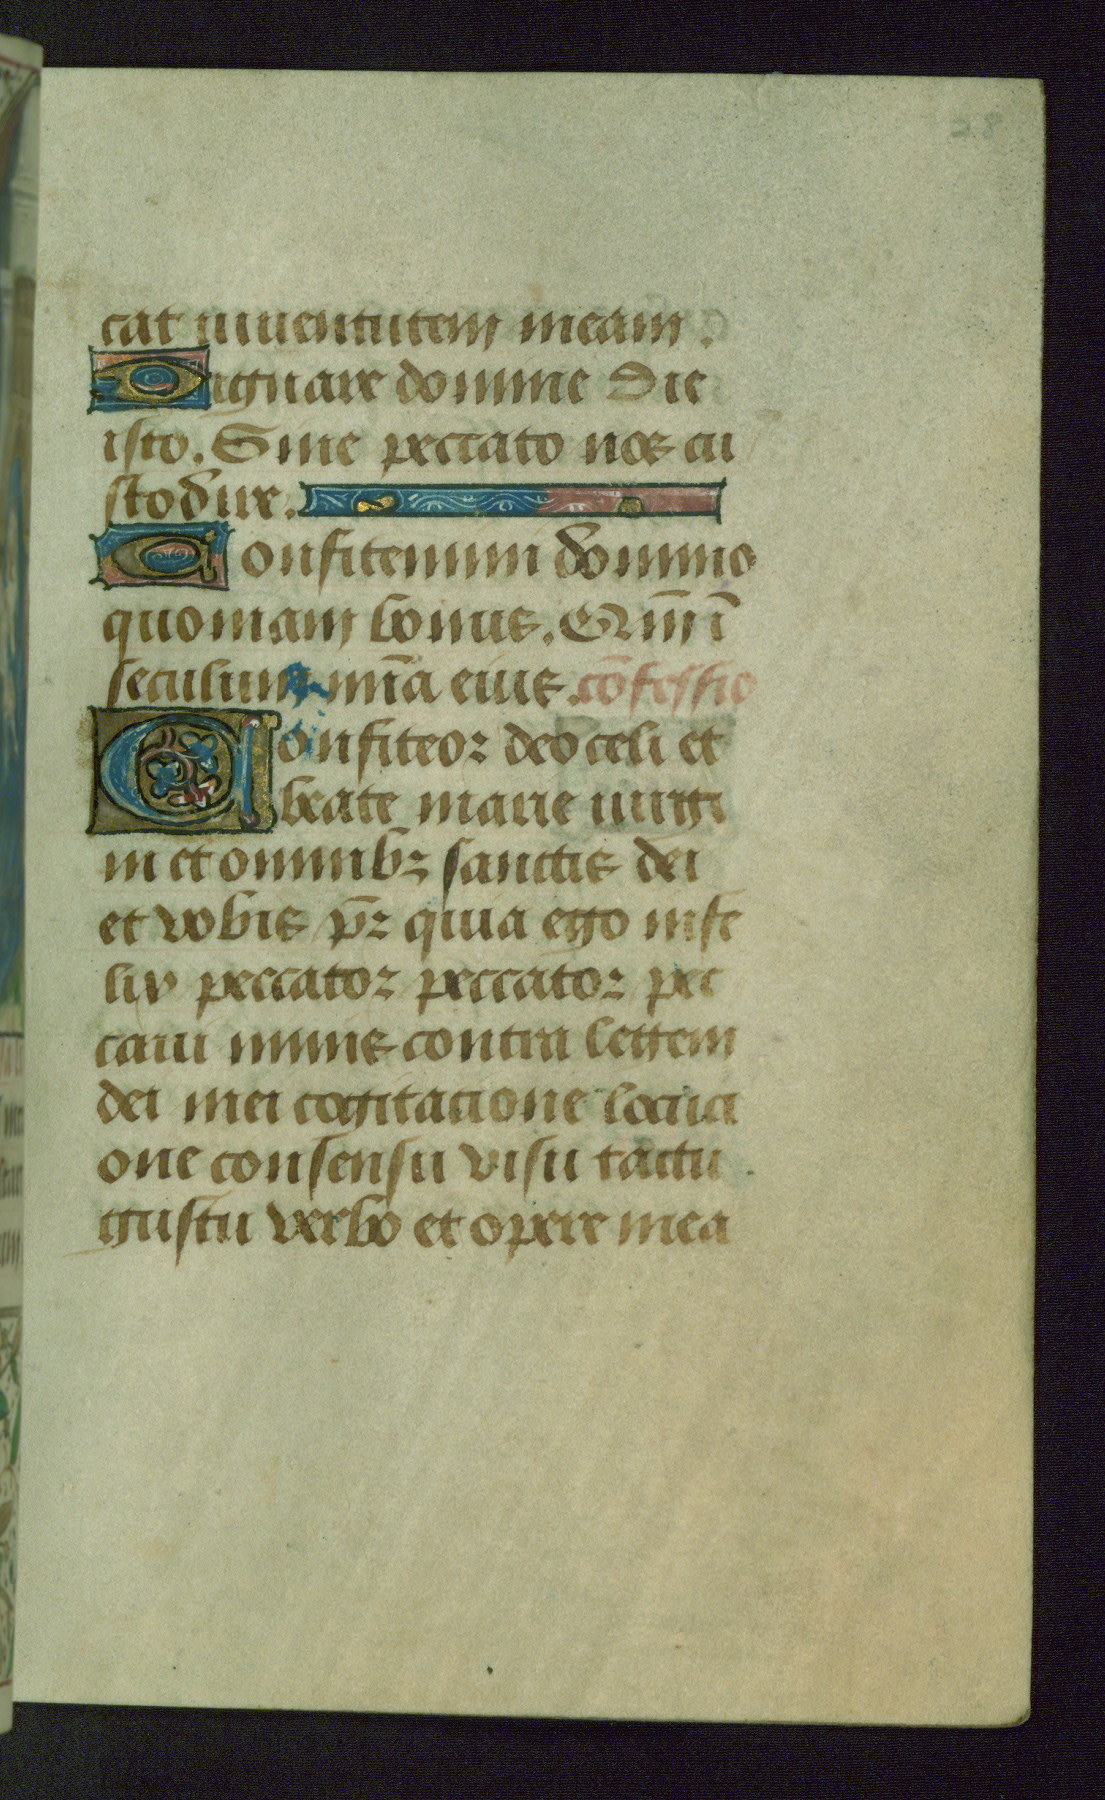 cat iuventutem meam.
Dignare domine Die
isto. Sine peccato nos cu
stodire.
Confitemini domino
quoniam bonus. Qm̄ ī
seculum mīa eius. cōfessio
Confiteor deo celi et
beate marie uirgi
ni et omnibꝫ sanctis dei
et vobis p̄r quia ego infe
lix peccator peccator pec
caui nimis contra legem
dei mei cogitatione locuci
one consensu visu tactu
gustu verbo et opere mea